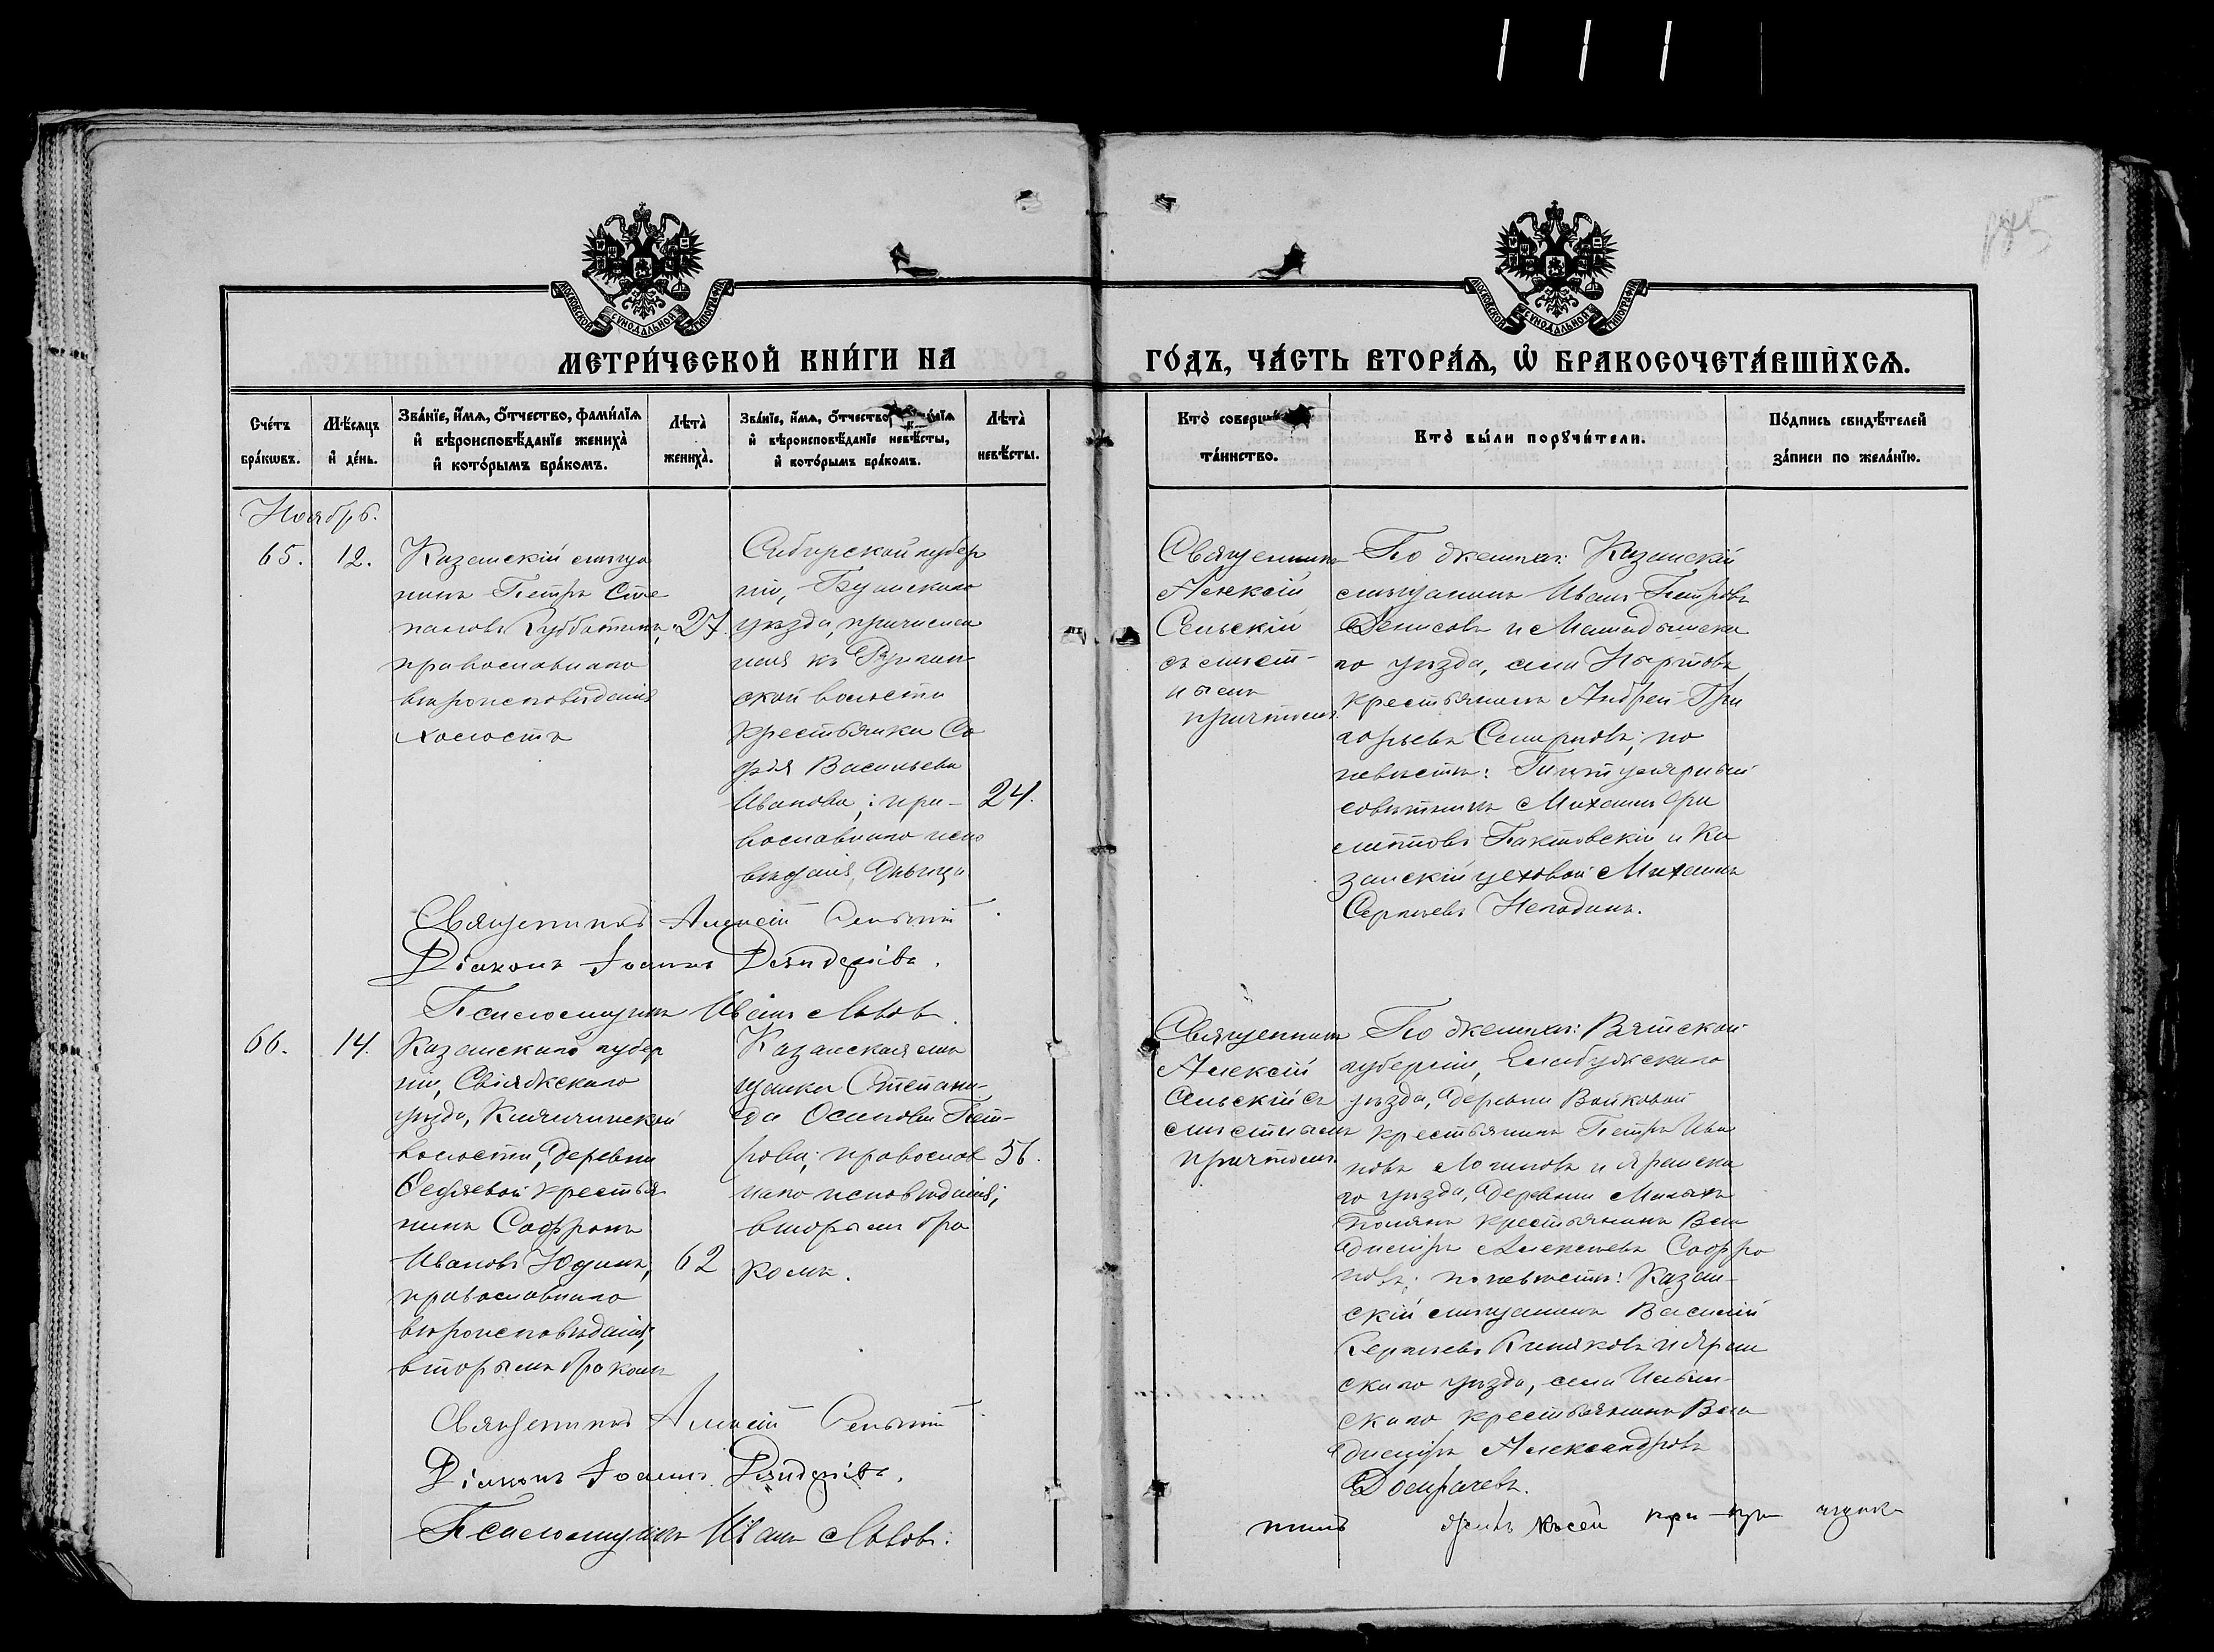 МЕТРИ́ЧЕСКОЙ КНИ́ГИ НА ГО́ДЪ, ЧА́СТЬ ВТОРА́Я, Ѡ БРАКОСОЧЕТА́ВШИХСЯ.
МОСКОВСКОЙ СѴНОДАЛЬНОЙ ТИПОГРАФІИ
МОСКОВСКОЙ СѴНОДАЛЬНОЙ ТИПОГРАФІИ
Сче́тъ
бра́кѡвъ.
Мѣ́сяцъ
и҆ де́нь.
Зва́нїе, и҆́мѧ, ѻ҆́тчество, фами́лїѧ
и҆ вѣроисповѣ́данїе жениха̀
и҆ кото́рымъ бра́комъ.
Лѣта̀
жениха̀.
Зва́нїе, и҆́мѧ, ѻ҆́тчество,
и҆ вѣроисповѣ́данїе невѣ́сты,
и҆ кото́рымъ бра́комъ.
Лѣта̀
невѣ́сты.
Кто̀
та́инство.
Кто̀ бы́ли порꙋчи́тели.
По́дпись свидѣ́телей
за́писи по жела́нїю.
Ноябрь.
65.
12.
Казанскій мѣща
нинъ Петръ Сте
пановъ Субботинъ,
православнаго
вѣроисповѣданія
холостъ
27.
Симбирской губер
ніи, Буинскаго
уѣзда, причислен
ная къ
ской волости
крестьянка Со
фія Васильева
Иванова; пра-
вославнаго испо
вѣданія, дѣвица
24.
Священникъ
Алексій
Сельскій
съ мѣст-
нымъ
причтомъ.
По женихѣ: Казанскій
мѣщанинъ Иванъ Петровъ
Денисовъ и Мамадышска
го уѣзда, села Нырты
крестьянинъ Андрей Гри
горьевъ Смирновъ; по
невѣстѣ: Титулярный
совѣтникъ Михаилъ Фи
липповъ Пактовскій и Ка
занскій цеховой Михаилъ
Сергѣевъ Негодинъ.
Священникъ Алексій Сельскій.
Діаконъ Іоаннъ
Псаломщикъ Иванъ Львовъ.
66.
14.
Казанской губер
ніи, Свіяжскаго
уѣзда, Кильдеевской
волости, деревни
крестья
нинъ Софронъ
Ивановъ Юдинъ,
православнаго
вѣроисповѣданія;
вторымъ бракомъ
62
Казанская мѣ
щанка Степани-
да Осипова Пет-
рова; православ
наго исповѣданія;
вторымъ бра
комъ.
56.
Священникъ
Алексій
Сельскій съ
мѣстнымъ
причтомъ
По женихѣ: Вятской
губерніи, Елабужскаго
уѣзда, деревни
крестьянинъ Петръ Ива
новъ Логиновъ и Яранска
го уѣзда, деревни Малыхъ
Полянъ крестьянинъ Вла
диміръ Алексѣевъ Софро
новъ; по невѣстѣ: Казан-
скій мѣщанинъ Василій
Сергѣевъ и Яран
скаго уѣзда, села Ильин-
скаго крестьянинъ Вла
диміръ Александровъ
Домрачевъ.
Священникъ Алексій Сельскій.
Діаконъ Іоаннъ
Псаломщикъ Иванъ Львовъ.